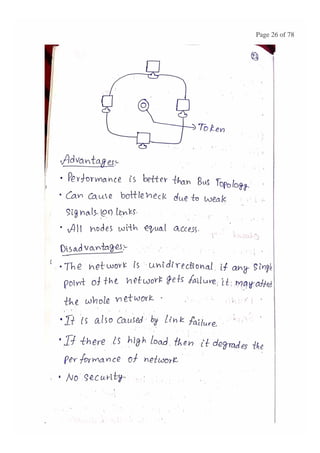 Page 26 of 78
Token
Advantages:-
• Performance is better than Bus Topology.
• Can cause bottleneck due to weak
signals (or) lenks.
• All nodes with equal access.
Disadvantages:-
• The network is unidirectional if any single
point of the network gets failure, it may affed
the whole network.
• It is also caused by link failure.
• If there is high load then it degrades the
performance of network
• No security